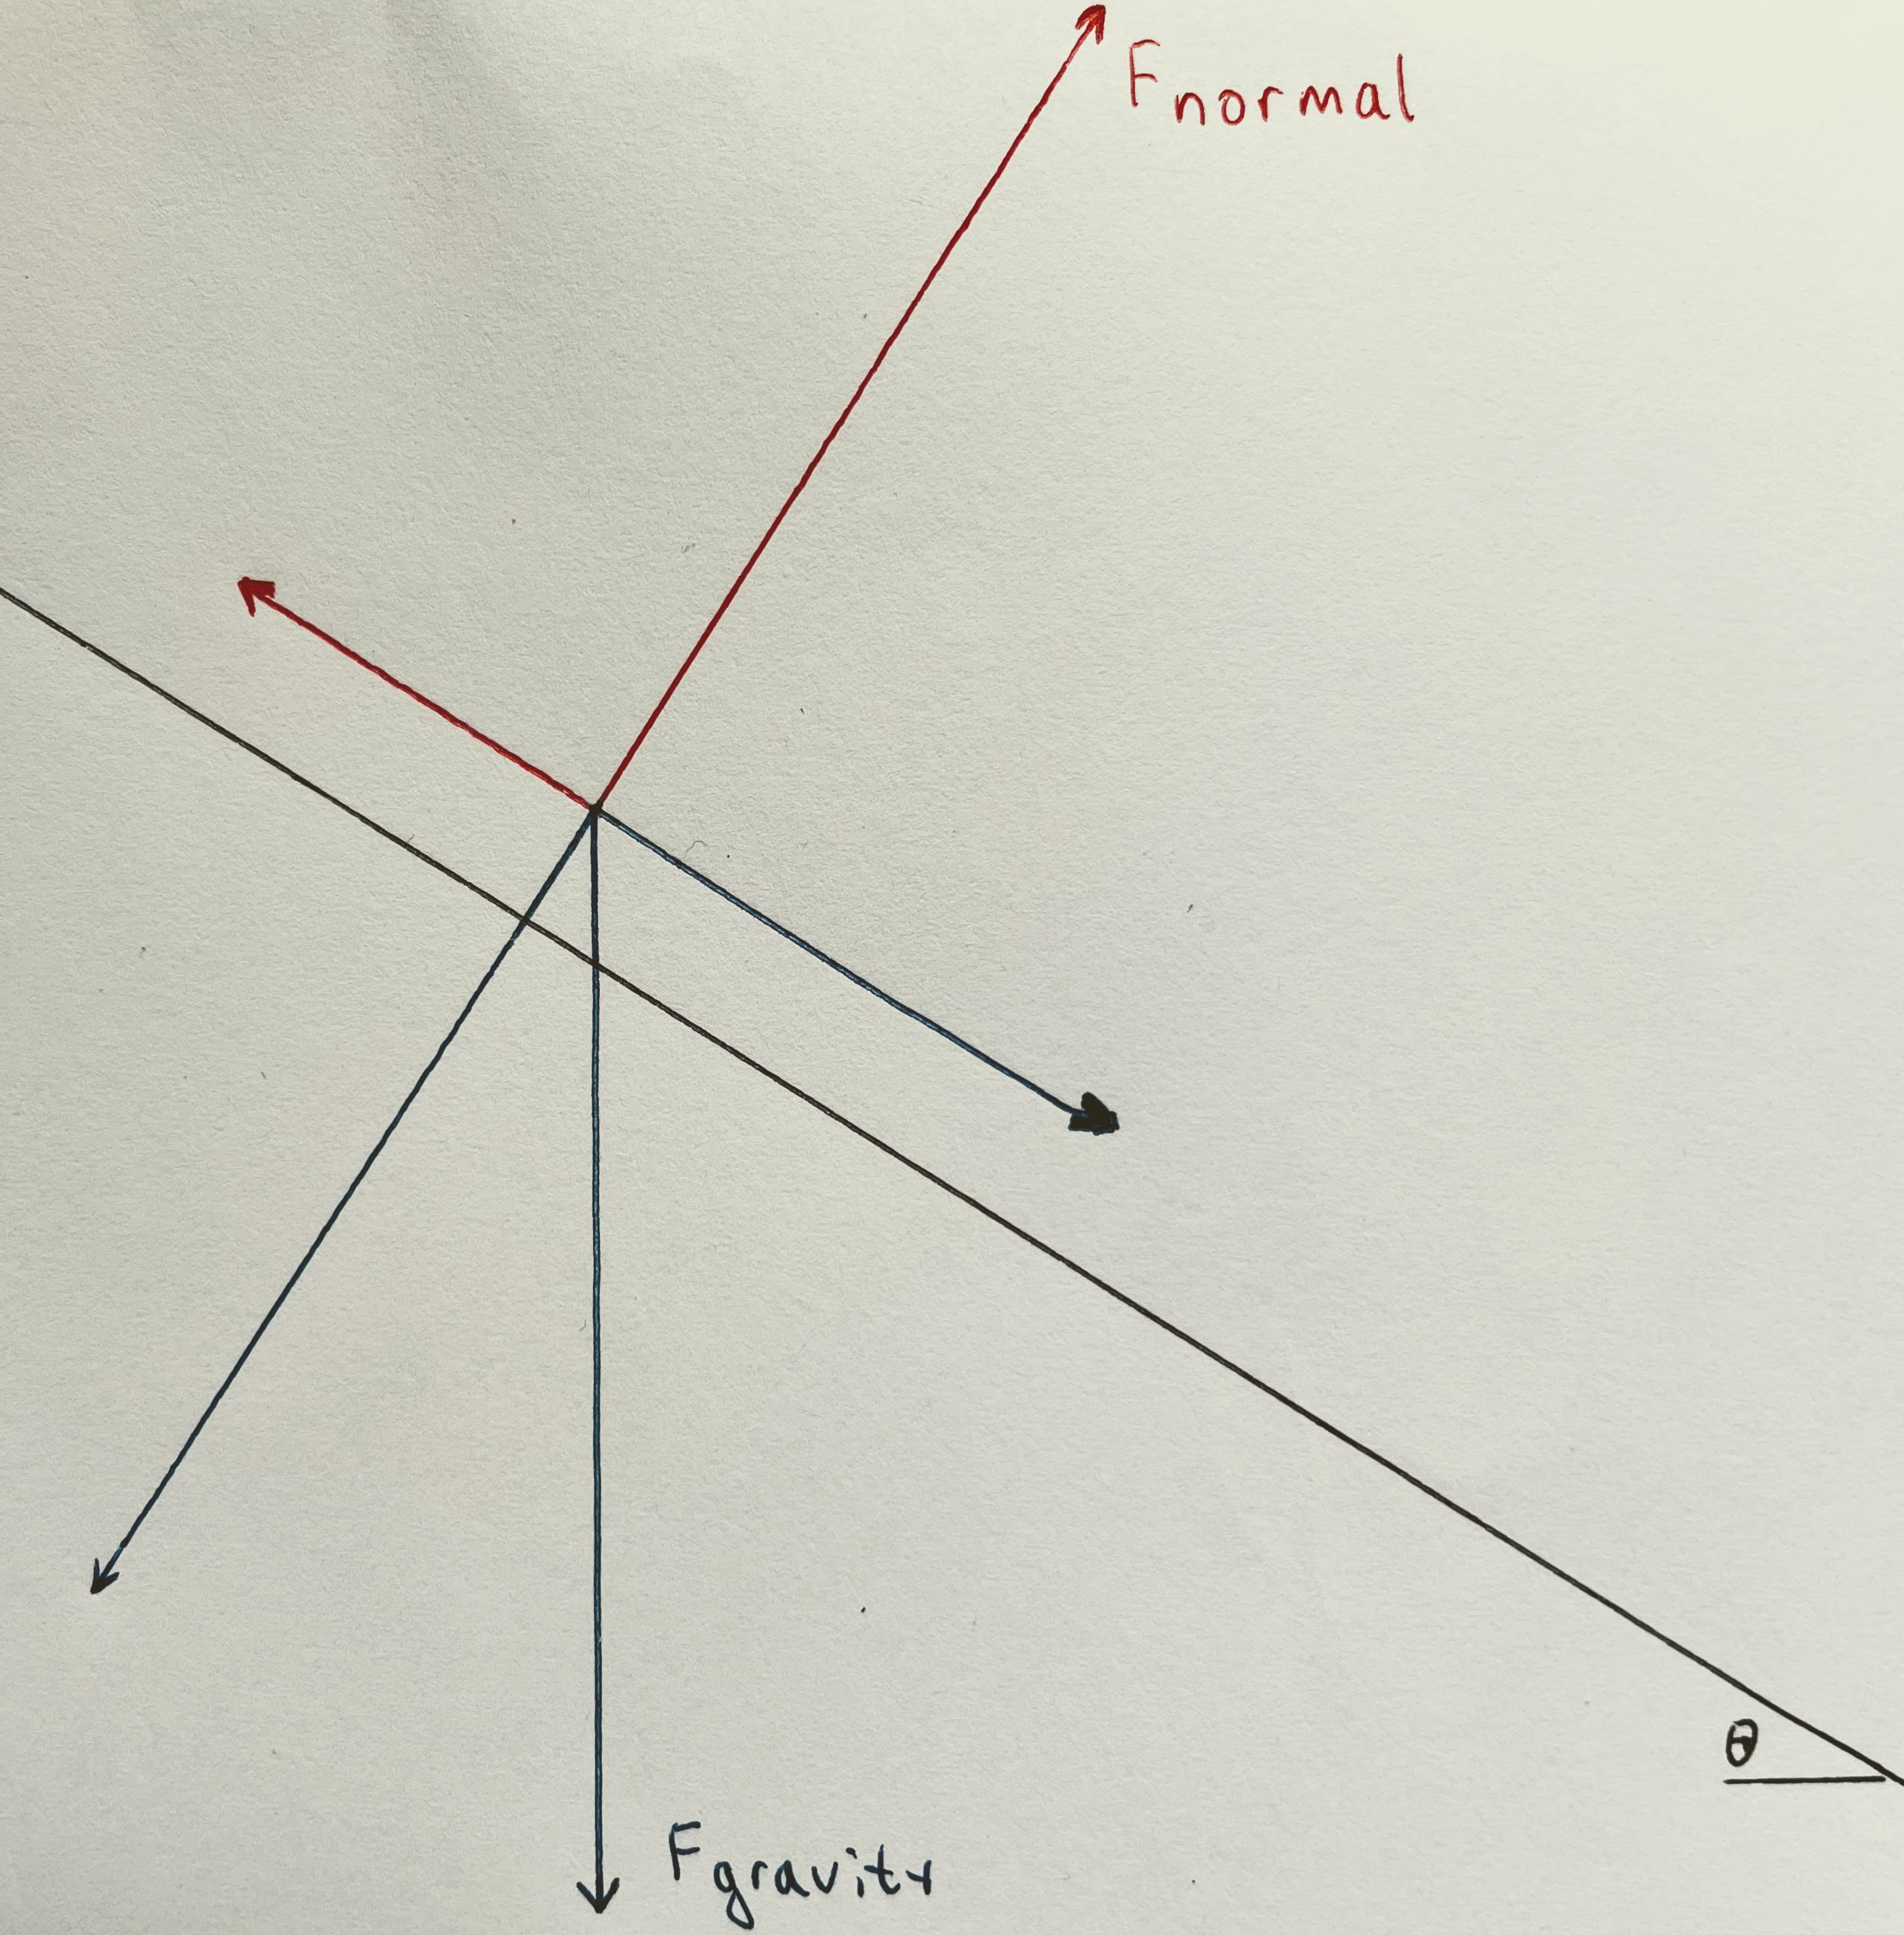 F normal
θ
F gravity